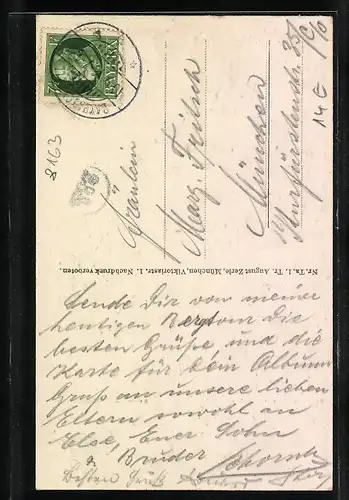 BAYERN
8163
Fräulein
Marg. Fritsch
München
Kurfürstenstr. 35/
14 E
Nr. Ta. 1. Tr. August Zerle, München, Viktoriastr. 1. Nachdruck verboten.
Sende Dir von meiner
heutigen Bergtour die
besten Grüße und die
Karte für Dein Album
Gruß an unsere lieben
Eltern sowohl an
Else, Euer Sohn
u. Bruder
Besten Gruß